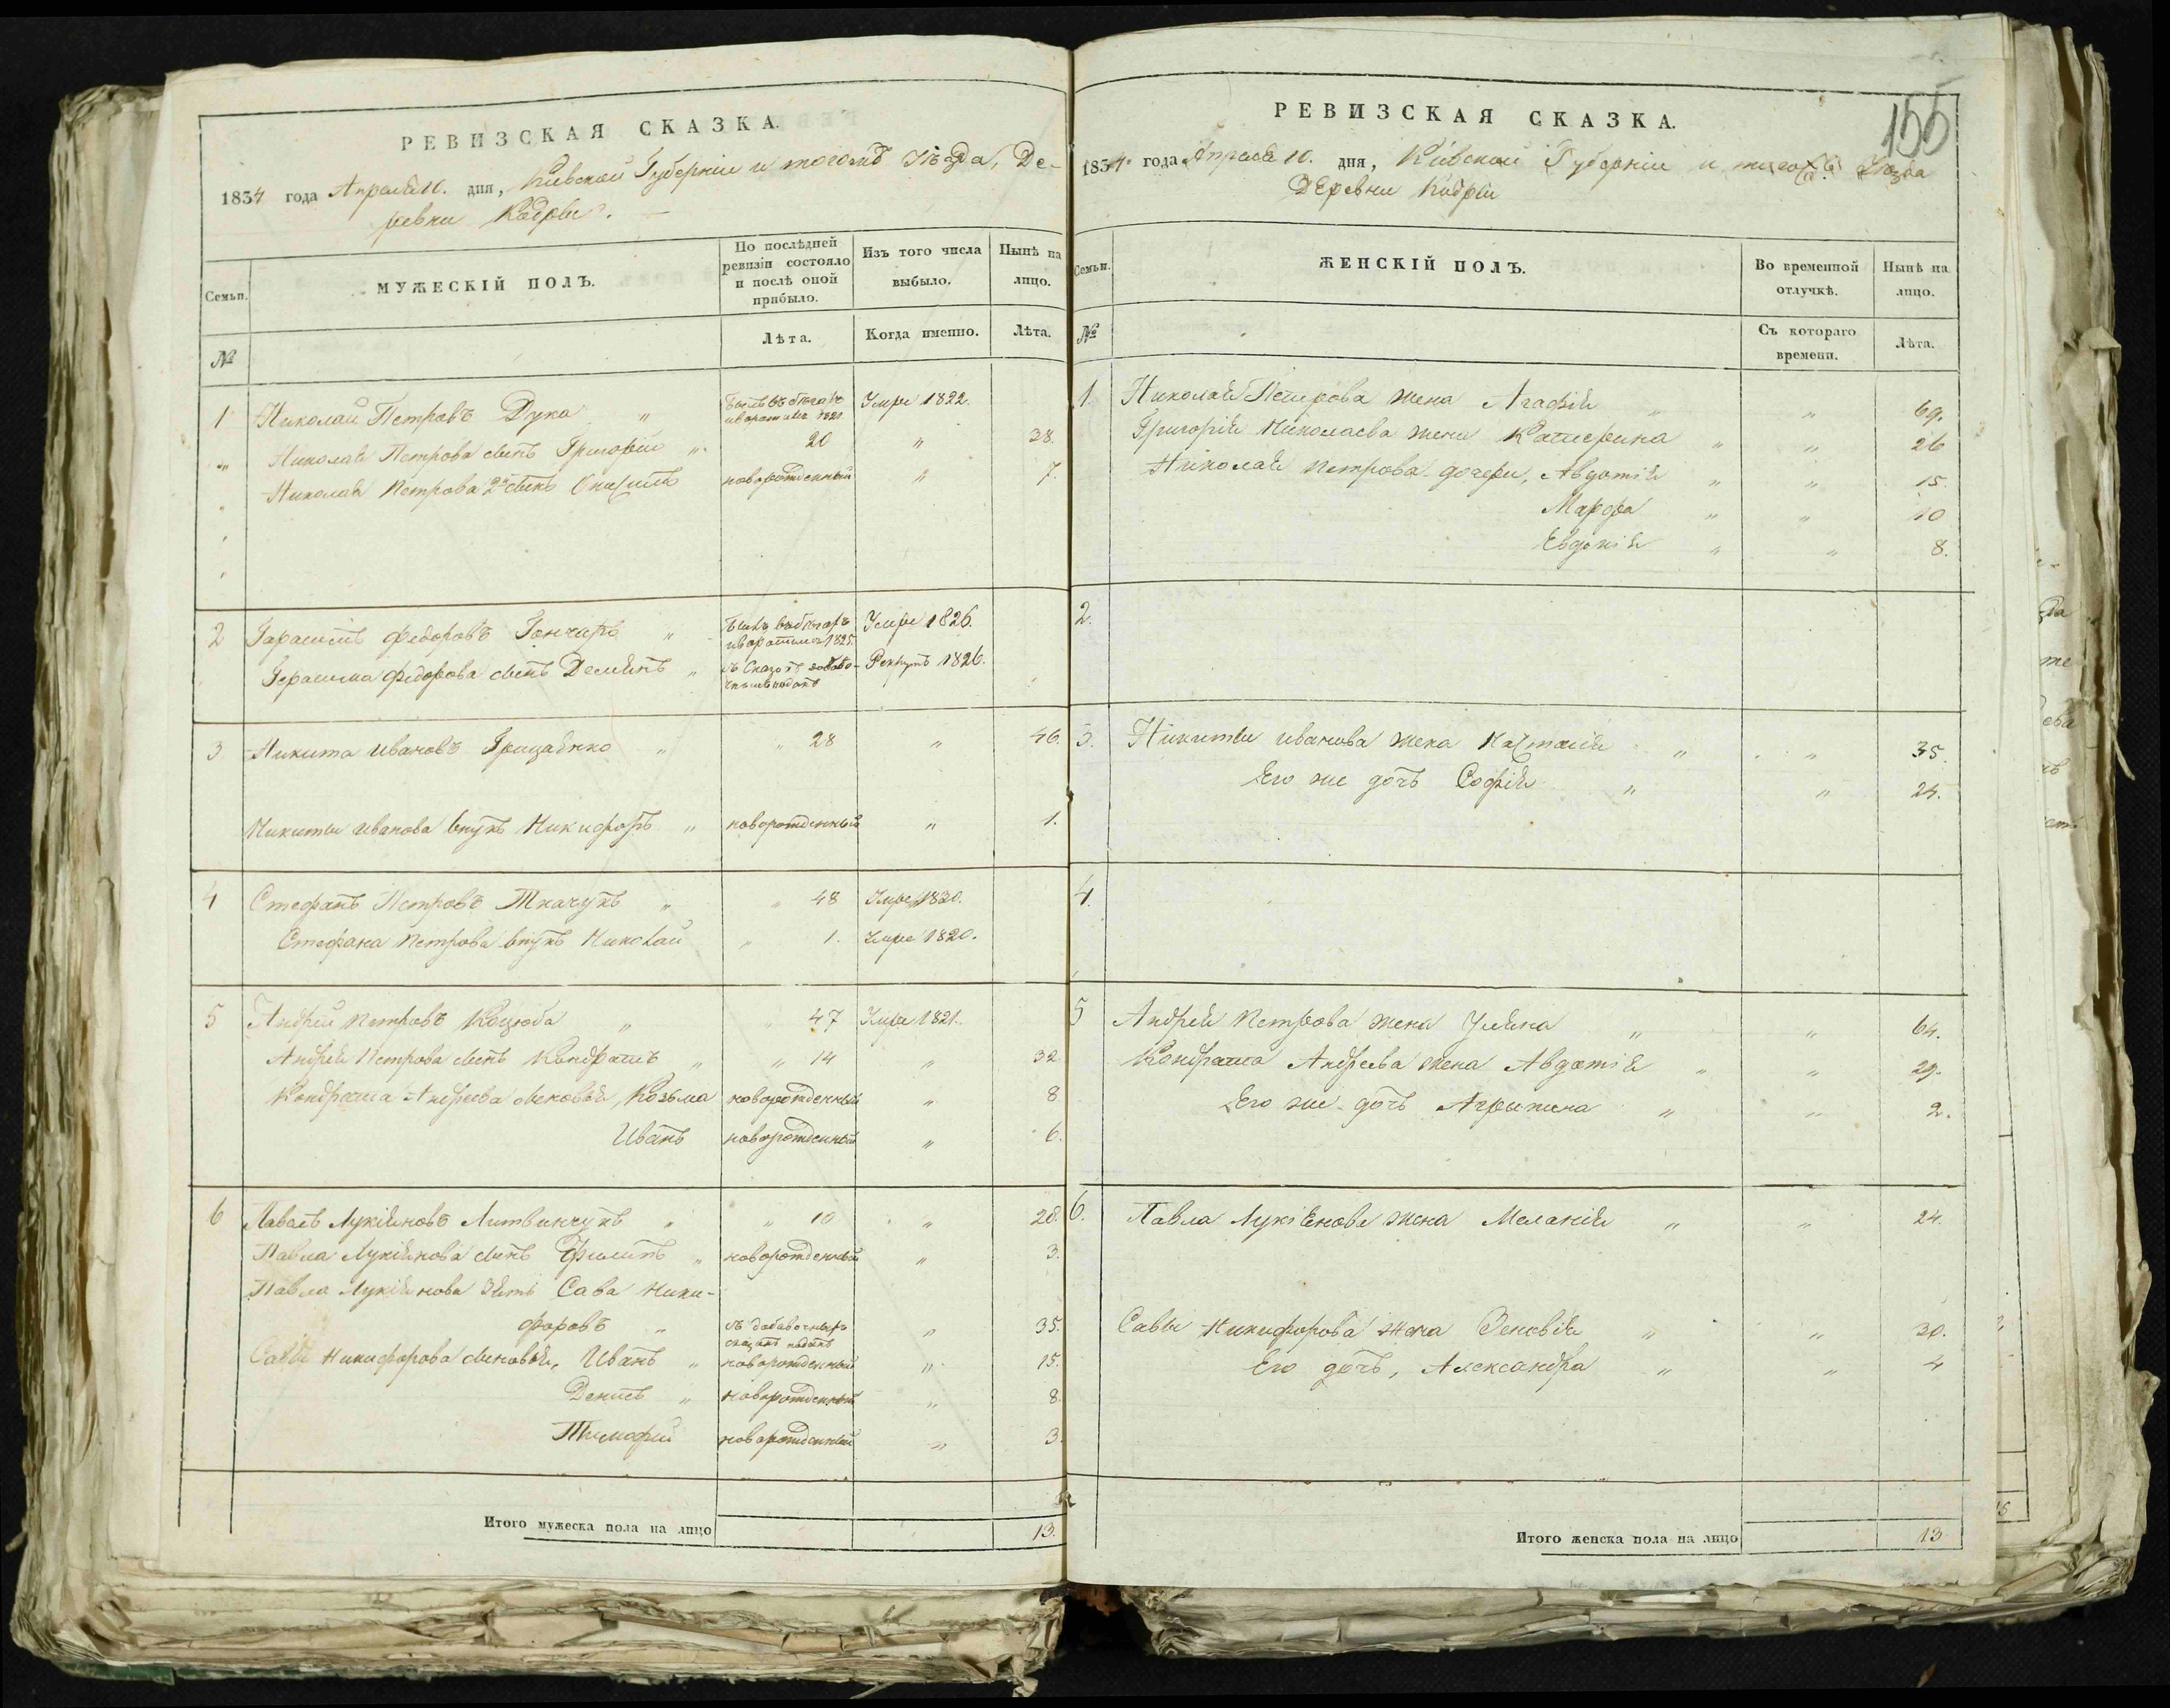 РЕВИЗСКАЯ СКАЗКА.
1834 года Апреля 10. дня, Киевской Губерніи и тогожъ Уѣзда, Де-
ревни Кодры.
Семьи.
МУЖЕСКІЙ ПОЛЪ.
По послѣдней ревизіи состояло и послѣ оной прибыло.
Изъ того числа выбыло.
Нынѣ на лицо.
№
Лѣта.
Когда именно.
Лѣта.
1 Николай Петровъ Дука " былъ въ бѣгахъ Умре 1822.
и воротился 1821
" Николая Петрова сынъ Григорій " 20 " 38.
Николая Петрова 2й сынъ новорожденный " 7.
2 Гарасимъ Федоровъ Гончаръ " былъ въ бѣгахъ Умре 1826.
и воротился 1825.
Герасима Федорова сынъ Демянъ " Рекрутъ 1826.
3 Никита Ивановъ Грицаенко " " 28 " 46.
Никиты Иванова внукъ Никифоръ " новорожденный " 1.
4 Стефанъ Петровъ Ткачукъ " " 48 Умре 1830.
Стефана Петрова внукъ Николай " 1. Умре 1820.
5 Андрей Петровъ Коцюба " " 47 Умре 1821.
Андрея Петрова сынъ Кондратъ " " 14 " 32
Кондрата Андреева сыновья, Козьма новорожденный " 8
Иванъ новорожденный " 6.
6 Павелъ Лукіяновъ Литвинчукъ " " 10 " 28.
Павла Лукіянова сынъ Филипъ " новорожденный " 3.
Павла Лукіянова Зять Сава Ники-
форовъ " въ добавочныхъ " 35.
сказкахъ поданъ
Савы Никифорова сыновья, Иванъ " новорожденный " 15.
Денисъ " новорожденный " 8.
Тимофей новорожденный " 3.
Итого мужеска пола на лицо 13.
155
РЕВИЗСКАЯ СКАЗКА.
1834 года Апреля 10. дня, Кіевской Губерніи и тогожъ Уѣзда
Деревни Кодры
Семьи.
ЖЕНСКІЙ ПОЛЪ.
Во временной отлучкѣ.
Нынѣ на лицо.
№
Съ котораго времени.
Лѣта.
1. Николая Петрова жена Агафія " " 69.
Григорія Николаева жена Катерина " " 26
Николая Петрова дочери, Авдотія " " 15.
Марфа " " 10
Евдокія " " 8.
2.
3. Никиты Иванова жена Настасія " " 35.
Его же дочь Софія " " 24.
4.
5 Андрея Петрова жена Уляна " " 64.
Кондрата Андреева жена Авдотія " " 29.
Его же дочь Агрипина " " 2.
6. Павла Лукіянова жена Меланія " " 24.
Савы Никифорова жена Зеновія " " 30.
Его дочь, Александра " " 4
Итого женска пола на лицо 13